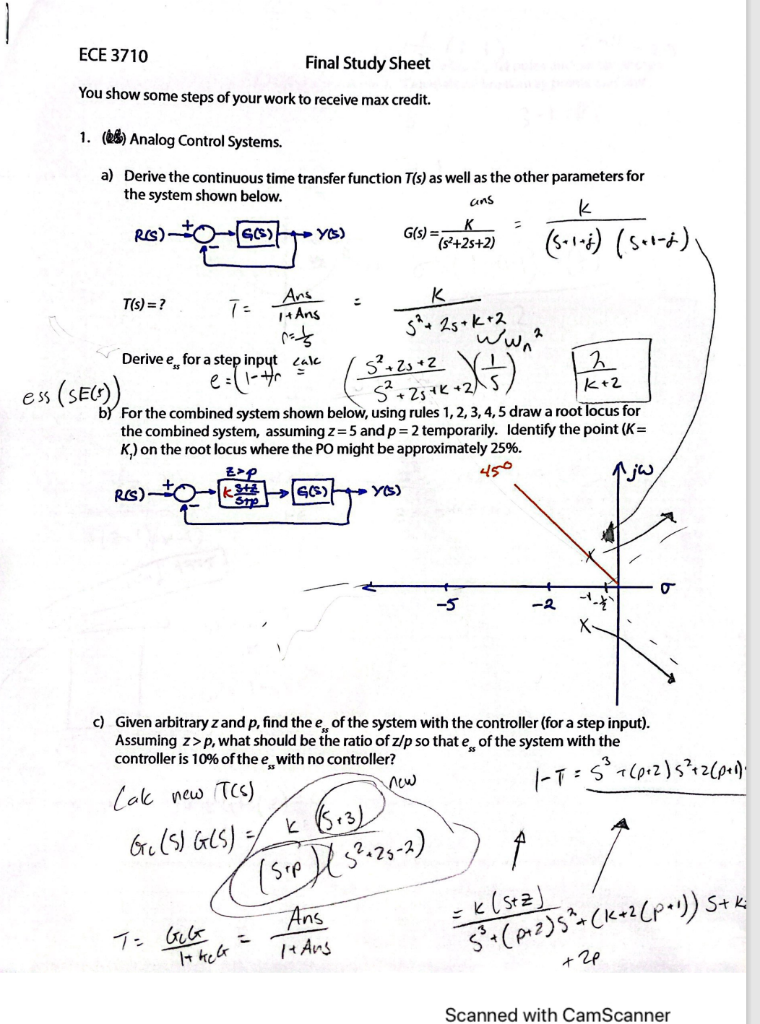 ECE 3710
Final Study Sheet
You show some steps of your work to receive max credit.
1. Analog Control Systems.
a) Derive the continuous time transfer function T(s) as well as the other parameters for
the system shown below.
ans
R(S) + - G(S) Y(S)
G(s) = K/(s²+2s+2) = K/((s+1+j)(s+1-j))
T(s) = ?
T = Ans/(1+Ans) = K/(s²+2s+K+2)
r = 1/s
Wn²
Derive e_ss for a step input calc
e = (1-T)r = ((s²+2s+2)/(s²+2s+K+2))(1/s)
2/(K+2)
ess (SE(s))
b) For the combined system shown below, using rules 1, 2, 3, 4, 5 draw a root locus for
the combined system, assuming z = 5 and p = 2 temporarily. Identify the point (K=
K₁) on the root locus where the PO might be approximately 25%.
z>p
45°
jω
R(S) + - K (s+z)/(s+p) G(S) Y(S)
σ
-5
-2
-1
c) Given arbitrary z and p, find the e_ss of the system with the controller (for a step input).
Assuming z>p, what should be the ratio of z/p so that e_ss of the system with the
controller is 10% of the e_ss with no controller?
1-T = s³+(p+2)s²+2(p+1)
Calc new T(s)
new
Gc(s) G(s) = K(s+3)/((s+p)(s²+2s-2))
T = GcG/(1+GcG) = Ans/(1+Ans)
= K(s+z)/(s³+(p+2)s²+(K+2(p+1))s+K
+2p
Scanned with CamScanner